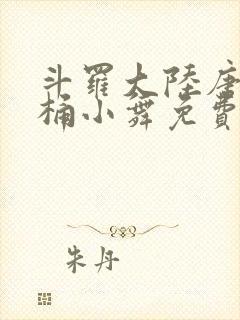 斗罗大陸唐
桶小舞免費
朱丹